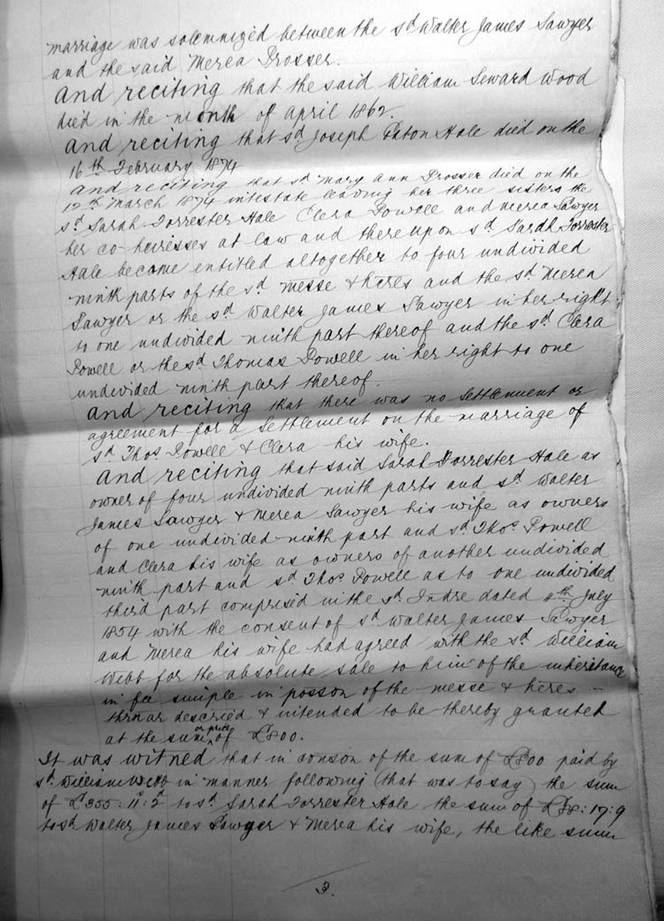 marriage was solemnized between the sd Walter James Sawyer
and the said Merea Prosser.
And reciting that the said William Seward Wood
died in the month of April 1862.
And reciting that sd Joseph Paton Hale died on the
16th February 1874
And reciting that sd Mary Ann Prosser died on the
12th March 1874 intestate leaving her three sisters the
sd Sarah Forrester Hale Clera Powell and Merea Sawyer
her co-heiresses at law and thereupon sd Sarah Forrester
Hale became entitled altogether to four undivided
ninth parts of the sd messe & heres and the sd Merea
Sawyer or the sd Walter James Sawyer in her right
to one undivided ninth part thereof and the sd Clera
Powell or the sd Thomas Powell in her right to one
undivided ninth part thereof.
And reciting that there was no settlement or
agreement for a settlement on the marriage of
sd Thos Powell & Clera his wife.
And reciting that said Sarah Forrester Hale as
owner of four undivided ninth parts and sd Walter
James Sawyer & Merea Sawyer his wife as owners
of one undivided ninth part and sd Thos Powell
and Clera his wife as owners of another undivided
ninth part and sd Thos Powell as to one undivided
third part comprised in the sd Indre dated July
1854 with the consent of sd Walter James Sawyer
and Merea his wife had agreed with the sd William
Webb for the absolute sale to him of the inheritance
in fee simple in posson of the messe & heres –
thrnar descried & intended to be thereby granted
at the sum or price of £800.
It was witned that in conson of the sum of £800 paid by
sd William Webb in manner following (that was to say) the sum
of £355:11:2 to sd Sarah Forrester Hale the sum of £88:17:9
to sd Walter James Sawyer & Merea his wife, the like summ
3.